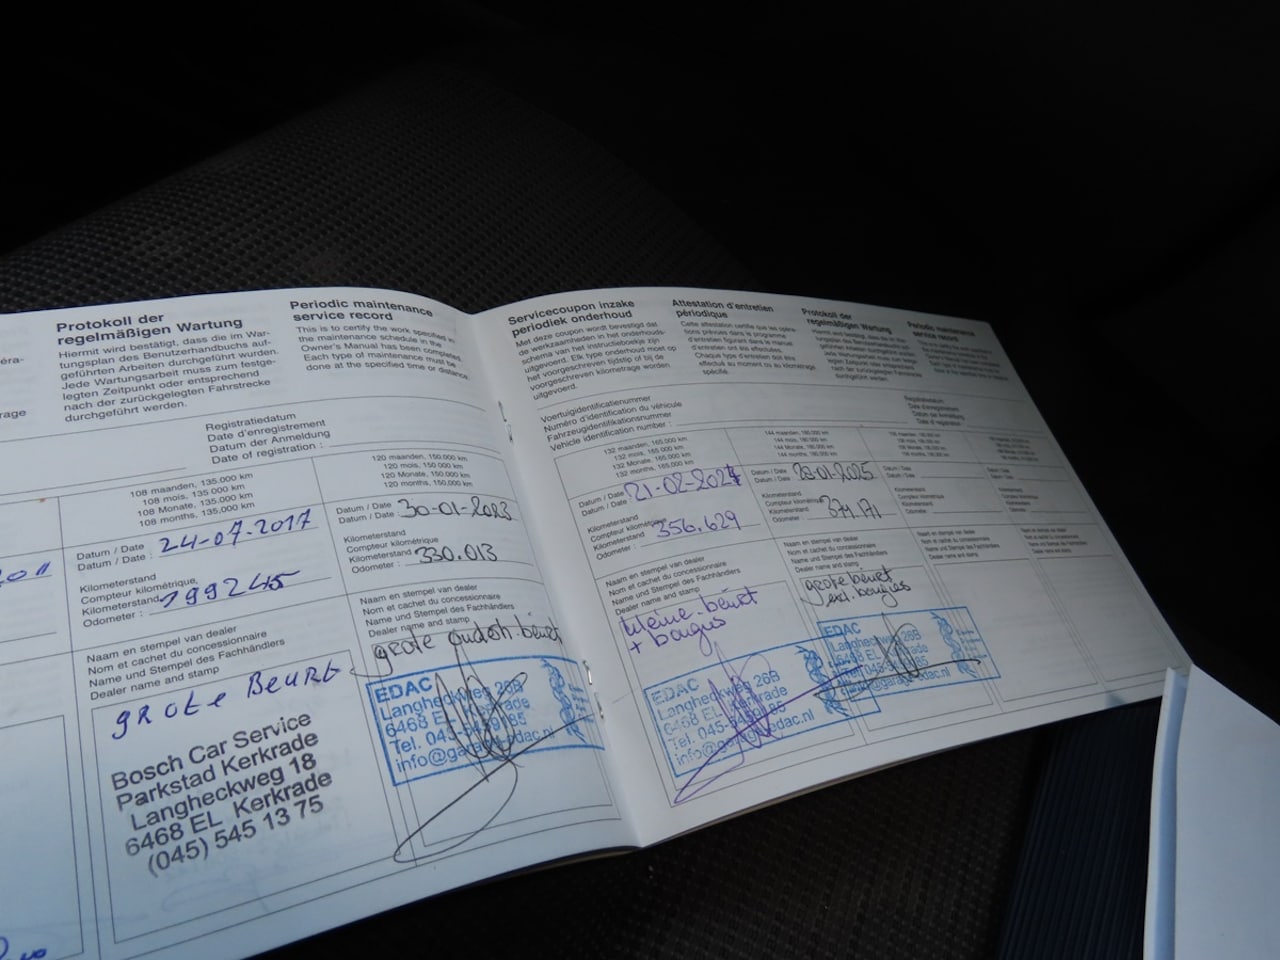 Protokoll der
regelmäßigen Wartung
Hiermit wird bestätigt, dass die im War-
tungsplan des Benutzerhandbuchs auf-
geführten Arbeiten durchgeführt wurden.
Jede Wartungsarbeit muss zum festge-
legten Zeitpunkt oder entsprechend
nach der zurückgelegten Fahrstrecke
durchgeführt werden.
Periodic maintenance
service record
This is to certify the work specified in
the maintenance schedule in the
Owner's Manual has been completed.
Each type of maintenance must be
done at the specified time or distance.
Registratiedatum
Date d'enregistrement
Datum der Anmeldung
Date of registration :
108 maanden, 135.000 km
108 mois, 135.000 km
108 Monate, 135.000 km
108 months, 135.000 km
Datum / Date
Datum / Date : 24-07-2017
Kilometerstand
Compteur kilométrique,
Kilometerstand
Odometer : 199245
Naam en stempel van dealer
Nom et cachet du concessionnaire
Name und Stempel des Fachhändlers
Dealer name and stamp
grote Beurt
Bosch Car Service
Parkstad Kerkrade
Langheckweg 18
6468 EL Kerkrade
(045) 545 13 75
120 maanden, 150.000 km
120 mois, 150.000 km
120 Monate, 150.000 km
120 months, 150.000 km
Datum / Date
Datum / Date : 30-01-2023
Kilometerstand
Compteur kilométrique
Kilometerstand
Odometer : 330.013
Naam en stempel van dealer
Nom et cachet du concessionnaire
Name und Stempel des Fachhändlers
Dealer name and stamp
grote onderh. beurt
EDAC
Langheckweg 26B
6468 EL Kerkrade
Tel. 045-5459185
info@garageedac.nl
Servicecoupon inzake
periodiek onderhoud
Met deze coupon wordt bevestigd dat
de werkzaamheden in het onderhouds-
schema van het instructieboekje zijn
uitgevoerd. Elk type onderhoud moet op
het voorgeschreven tijdstip of bij de
voorgeschreven kilometrage worden
uitgevoerd.
Attestation d'entretien
périodique
Cette attestation certifie que les opéra-
tions prévues dans le programme
d'entretien figurant dans le manuel
d'entretien ont été effectuées.
Chaque type d'entretien doit être
effectué au moment ou au kilométrage
spécifié.
Protokoll der
regelmäßigen Wartung
Periodic maintenance
service record
Voertuigidentificatienummer
Numéro d'identification du véhicule
Fahrzeugidentifikationsnummer
Vehicle identification number :
Registratiedatum
Date d'enregistrement
Datum der Anmeldung
Date of registration :
132 maanden, 165.000 km
132 mois, 165.000 km
132 Monate, 165.000 km
132 months, 165.000 km
Datum / Date
Datum / Date : 21-02-2024
Kilometerstand
Compteur kilométrique
Kilometerstand
Odometer : 356.629
Naam en stempel van dealer
Nom et cachet du concessionnaire
Name und Stempel des Fachhändlers
Dealer name and stamp
kleine beurt
+ bougies
EDAC
Langheckweg 26B
6468 EL Kerkrade
Tel. 045-5459185
info@garageedac.nl
144 maanden, 180.000 km
144 mois, 180.000 km
144 Monate, 180.000 km
144 months, 180.000 km
Datum / Date
Datum / Date : 28-01-2025
Kilometerstand
Compteur kilométrique
Kilometerstand
Odometer :
Naam en stempel van dealer
Nom et cachet du concessionnaire
Name und Stempel des Fachhändlers
Dealer name and stamp
grote beurt
excl. bougies
EDAC
Langheckweg 26B
6468 EL Kerkrade
Datum / Date
Datum / Date :
Kilometerstand
Compteur kilométrique
Kilometerstand
Odometer :
Naam en stempel van dealer
Nom et cachet du concessionnaire
Name und Stempel des Fachhändlers
Dealer name and stamp